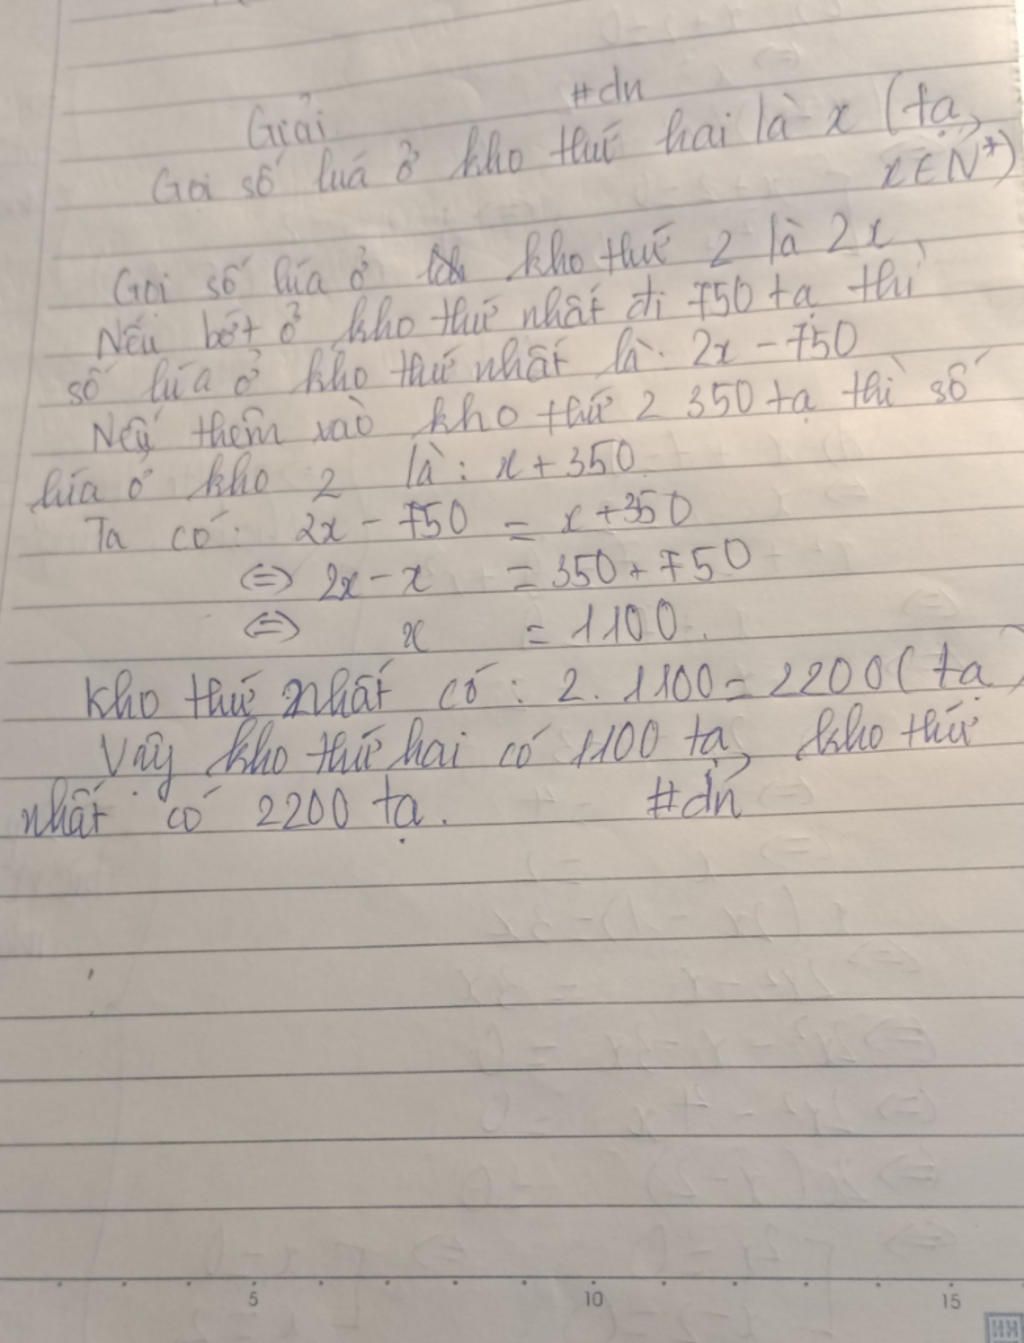 #dn
Giải
Gọi số luá ở kho thứ hai là x (tạ,
x∈N*)
Gọi số lúa ở kho thứ 2 là 2x
Nếu bớt ở kho thứ nhất đi 750 tạ thì
số lúa ở kho thứ nhất là: 2x - 750
Nếu thêm vào kho thứ 2 350 tạ thì số
lúa ở kho 2 là : x + 350
Ta có: 2x - 750 = x + 350
⇔ 2x - x = 350 + 750
⇔ x = 1100.
Kho thứ nhất có : 2. 1100 = 2200 ( tạ )
Vậy kho thứ hai có 1100 tạ, kho thứ
nhất có 2200 tạ. #dn
5 10 15